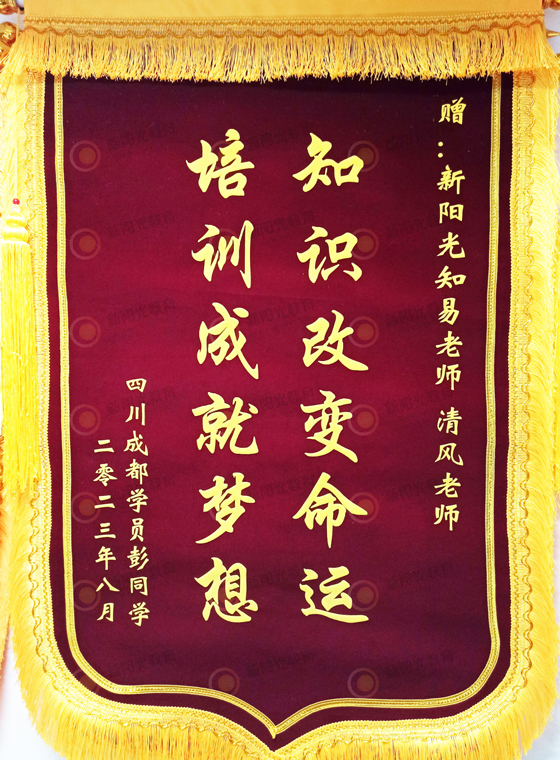 赠：新阳光知易老师 清风老师
知识改变命运
培训成就梦想
四川成都学员彭同学
二零二三年八月